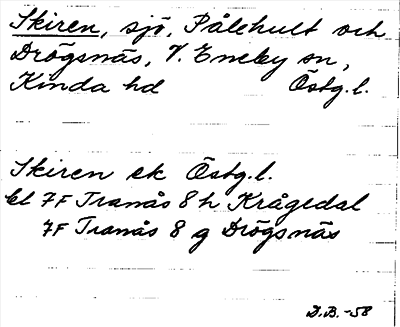 Skiren, sjö, Pålehult och
Drögsnäs, V. Eneby sn,
Kinda hd Östg.l.
Skiren ek Östg.l.
bl 7F Tranås 8 h Krågedal
7F Tranås 8 g Drögsnäs
D.B.-58